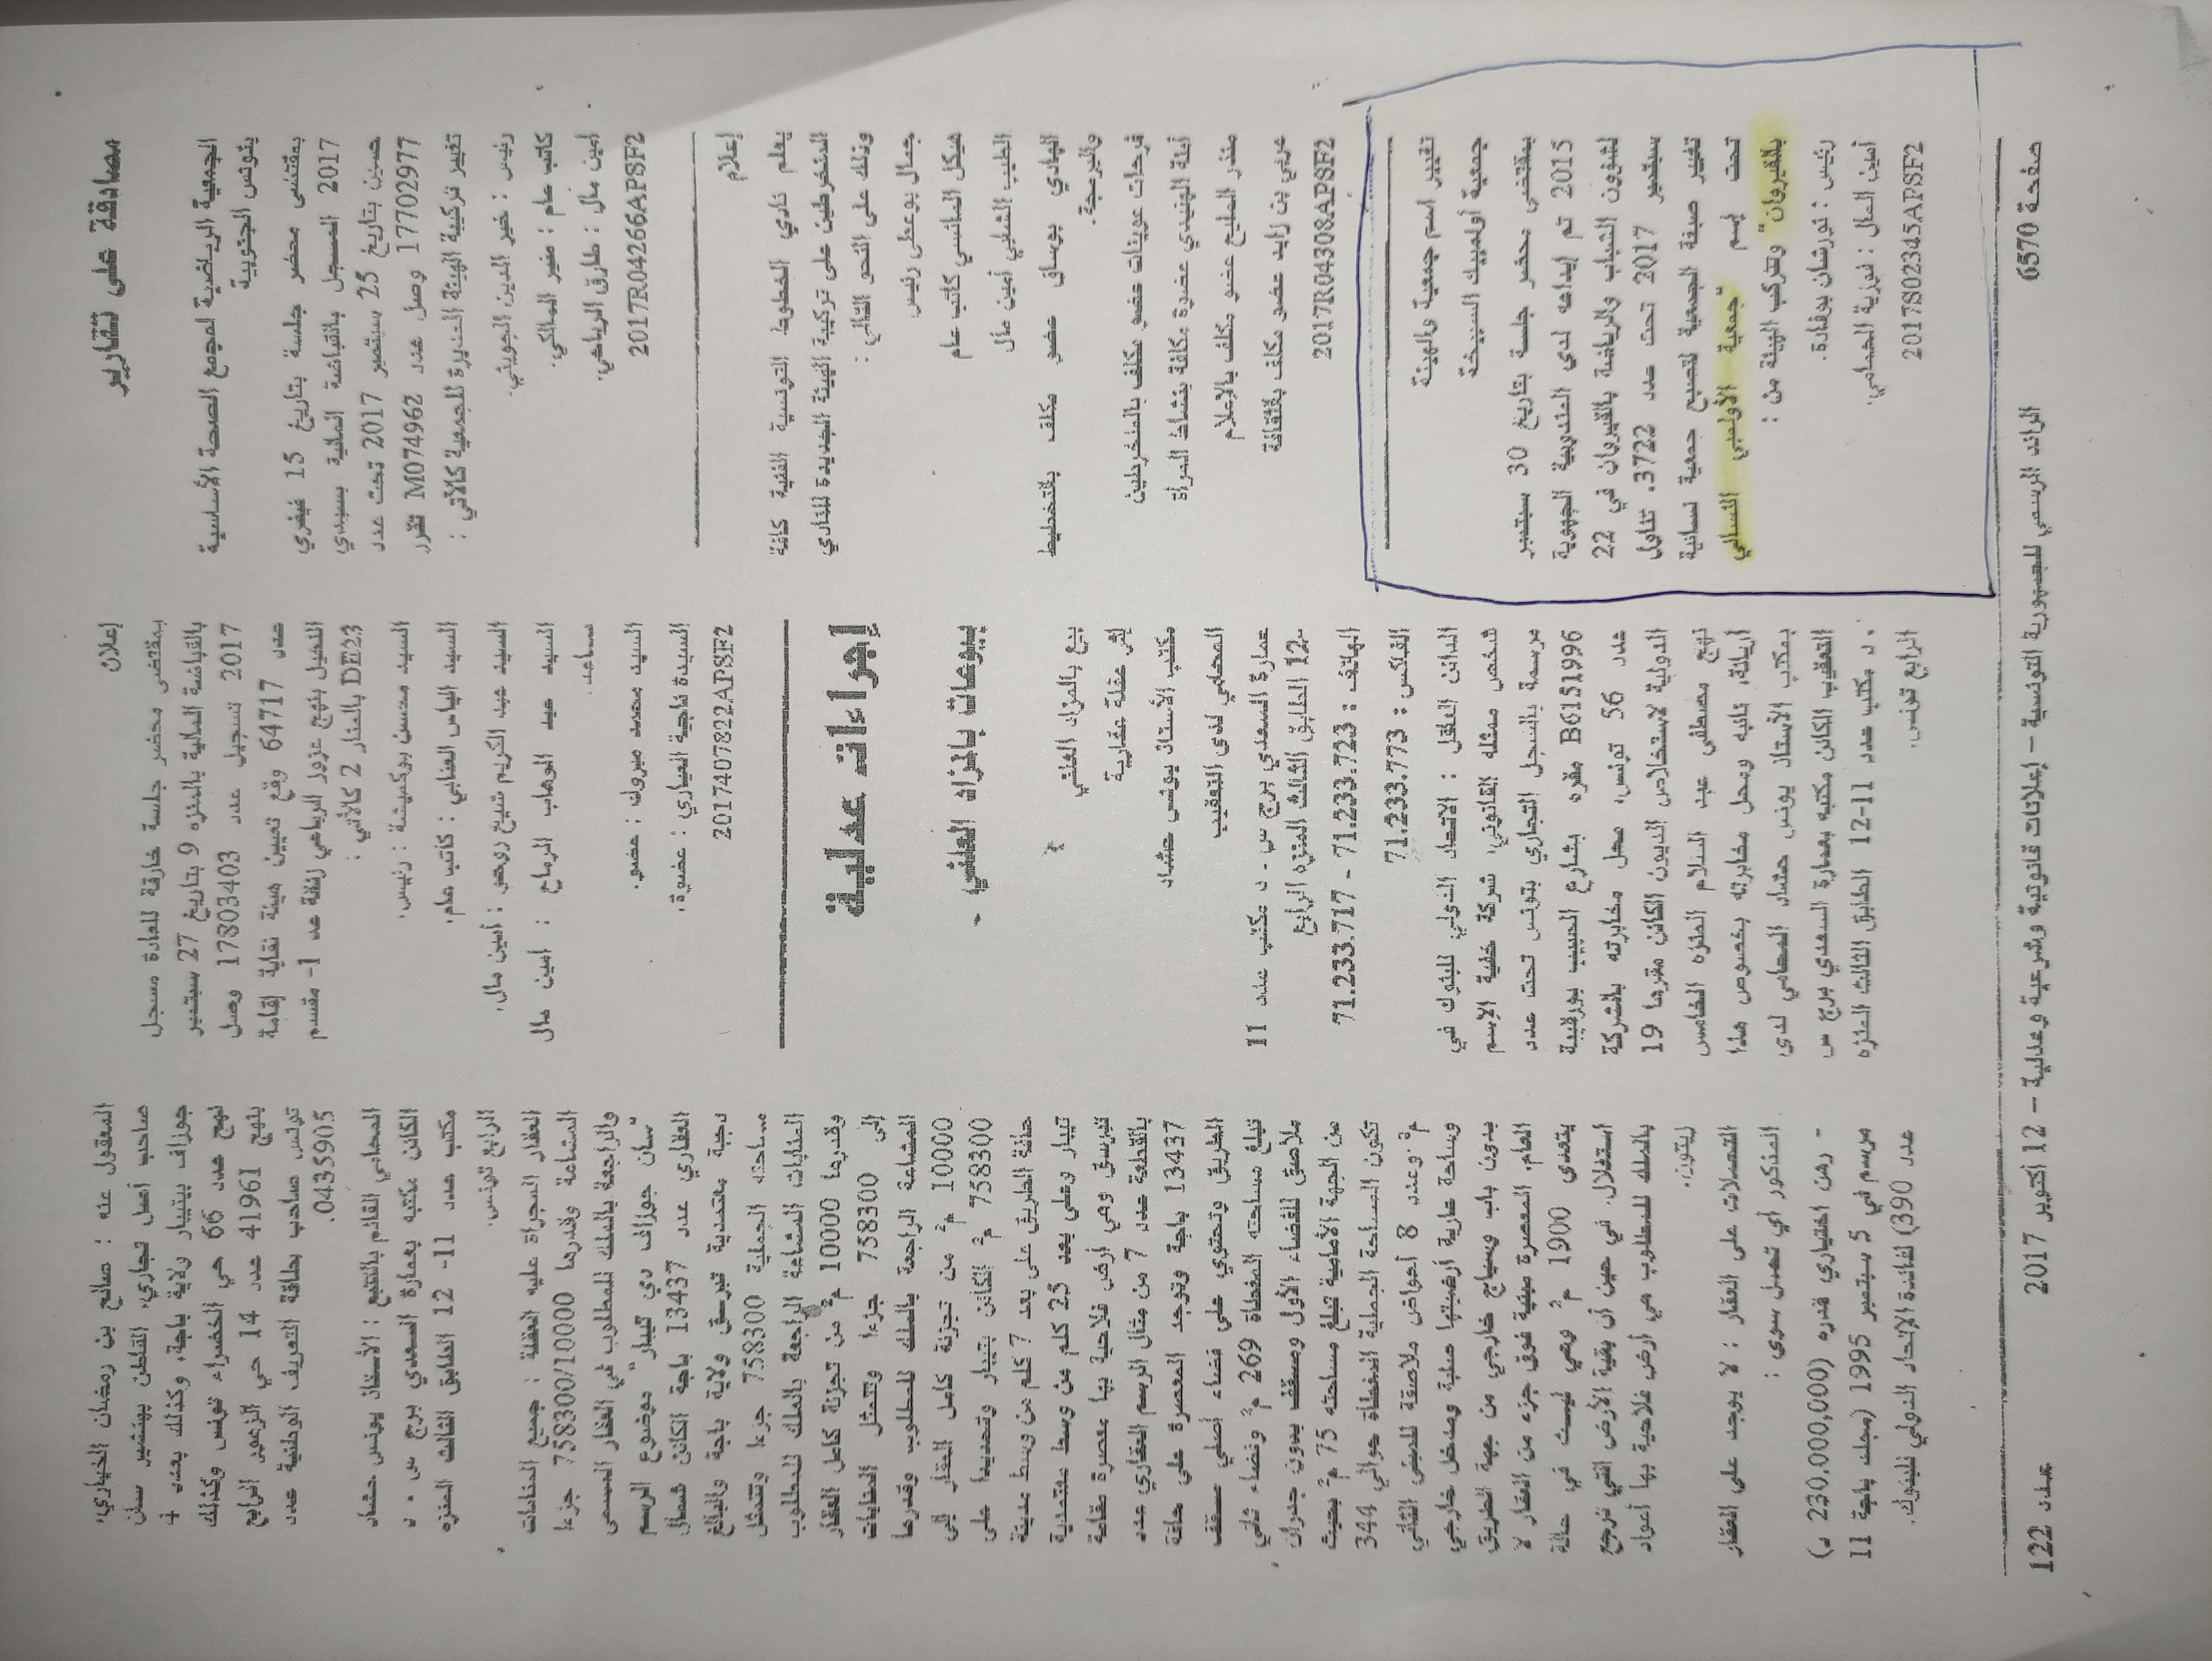 مصادقة على تقارير
الجمعية الرياضية لمجمع الصحة الأساسية
بتونس الجنوبية
بمقتضى محضر جلسة بتاريخ 15 فيفري
2017 المسجل بالقباضة المالية بسيدي
حسين بتاريخ 25 سبتمبر 2017 تحت عدد
17702977 وصل عدد M074962 تقرر
تغيير تركيبة الهيئة المديرة للجمعية كالآتي :
رئيس : خير الدين الجويني.
كاتب عام : منير المالكي.
أمين مال : طارق الرياحي.
2017R04266APSF2
إعلام
يعلم نادي الخطوط التونسية الفنية كافة
المنخرطين على تركيبة الهيئة الجديدة للنادي
وذلك على النحو التالي :
جمال بوعلي رئيس
هيكل الماتسي كاتب عام
الطيب الشلبي أمين مال
الهادي بوساق عضو مكلف بالتخطيط
والبرمجة.
فرحات عوينات عضو مكلف بالمنخرطين
آمنة الهنيدي عضوة مكلفة بنشاط المرأة
منذر المليح عضو مكلف بالإعلام
عربي بن زايد عضو مكلف بالثقافة
2017R04308APSF2
تغيير اسم جمعية والهيئة
جمعية أولمبيك السبيخة
بمقتضى محضر جلسة بتاريخ 30 سبتمبر
2015 تم إيداعه لدى المندوبية الجهوية
لشؤون الشباب والرياضة بالقيروان في 22
سبتمبر 2017 تحت عدد 3722. تناول
تغيير صبغة الجمعية لتصبح جمعية نسائية
تحت إسم "جمعية الأولمبي النسائي
بالقيروان" وتتركب الهيئة من :
رئيس : نورشان بوفادة.
أمين المال : فوزية الختامي.
2017S02345APSF2
إعلان
بمقتضى محضر جلسة خارقة للعادة مسجل
بالقباضة المالية بالمنزه 9 بتاريخ 27 سبتمبر
2017 تسجيل عدد 17803403 وصل
عدد 64717 وقع تعيين هيئة نقابة إقامة
النخيل بنهج عزوز الرباعي إقامة عد 1- مقسم
DE23 بالمنار 2 كالآتي :
السيد محسن بوكميشة : رئيس.
السيد الياس العنابي : كاتب عام.
السيد عبد الكريم شبيح روحو : أمين مال.
السيد عبد الوهاب الرماح : امين مال
مساعد.
السيد محمد مبروك : عضو.
السيدة ناجية العياري : عضوة.
2017407822APSF2
إجراءات عدلية
- بيوعات بالمزاد العلني
بيع بالمزاد العلني
إثر عقلة عقارية
مكتب الأستاذ يونس حشاد
المحامي لدى التعقيب
عمارة السعدي برج س. د مكتب عدد 11
-12 الطابق الثالث المنزه الرابع
الهاتف : 71.233.723 - 71.233.717
الفاكس : 71.233.773
الدائن العاقل : الاتحاد الدولي للبنوك في
شخص ممثله القانوني، شركة خفية الإسم
مرسمة بالسجل التجاري بتونس تحت عدد
B6151996 مقره بشارع الحبيب بورقيبة
عدد 56 تونس، محل مخابرته بالشركة
الدولية لاستخلاص الديون الكائن مقرها 19
نهج مصطفى عبد السلام المنزه الخامس
أريانة، نائبه ومحل مخابرته بخصوص هذا
بمكتب الأستاذ يونس حشاد المحامي لدى
التعقيب الكائن مكتبه بعمارة السعدي برج س
. د مكتب عدد 11-12 الطابق الثالث المنزه
الرابع تونس.
المعقول عنه : صالح بن رمضان الخياري،
صاحب أصل تجاري، القاطن بهنشير سان
جوزاف بتيبار ولاية باجة، وكذلك بعدد 4
نهج عدد 66 حي الخضراء تونس وكذلك
بنهج 41961 عدد 14 حي الزهور الرابع
تونس صاحب بطاقة التعريف الوطنية عدد
0435905.
المحامي القائم بالتتبع : الأستاذ يونس حشاد
الكائن مكتبه بعمارة السعدي برج س . د
مكتب عدد 11- 12 الطابق الثالث المنزه
الرابع تونس.
العقار المجراة عليه العقلة : جميع المنابات
المشاعة وقدرها 758300/10000 جزءا
والراجعة بالملك للمطلوب في العقار المسمى
"سان جوزاف دي تيبار" موضوع الرسم
العقاري عدد 13437 باجة الكائن شمال
دجبة معتمدية تبرسق ولاية باجة والبالغ
مساحته الجملية 758300 جزءا وتتمثل
المنابات المشاعة الراجعة بالملك للمطلوب
وقدرها 10000 م² من تجزئة كامل العقار
إلى 758300 جزءا وتتمثل المنابات
المشاعة الراجعة بالملك للمطلوب وقدرها
10000 م² من تجزئة كامل العقار إلى
758300 م² الكائن بتيبار وتحديدا على
حافة الطريق على بعد 7 كلم من وسط مدينة
تيبار وعلى بعد 25 كلم من وسط معتمدية
تبرسق وهي أرض فلاحية بها معصرة مقامة
بالقطعة عدد 7 من مثال الرسم العقاري عدد
13437 باجة وتوجد المعصرة على حافة
الطريق وتحتوي على فضاء أصلي مسقف
تبلغ مساحته المغطاة 269 م² وفضاء ثاني
ملاصق للفضاء الأول ومسقف بدون جدران
من الجهة الأمامية تبلغ مساحته 75 م² بحيث
تكون المساحة الجملية المغطاة حوالي 344
م² .وعدد 8 أحواض ملاصقة للمبنى الثاني
وساحة عارية أرضيتها صلبة ومدخل خارجي
بدون باب وسياج خارجي من جهة الطريق
العام. المعصرة مبنية فوق جزء من العقار لا
يتعدى 1900 م² وهي ليست في حالة
استغلال. في حين أن بقية الأرض التي ترجع
بالملك للمطلوب هي أرض فلاحية بها أعواد
زيتون.
التحملات على العقار : لا يوجد على العقار
المذكور أي تحمل سوى :
- رهن اختياري قدره (230.000,000 د)
مرسم في 5 سبتمبر 1995 (مجلد باجة 11
عدد 390) لفائدة الاتحاد الدولي للبنوك.
صفحة 6570
الرائد الرسمي للجمهورية التونسية – إعلانات قانونية وشرعية وعدلية – 12 أكتوبر 2017
عدد 122